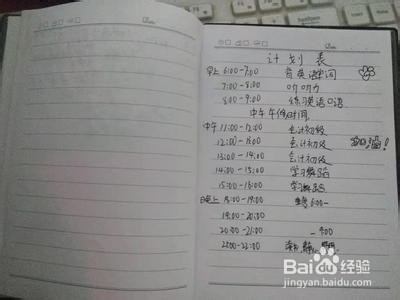 计划表
早上 6:00-7:00 背英语单词
7:00-8:00 听听力
8:00-9:00 练习英语口语
中午午休时间
中午 11:00-12:00 会计初级
12:00-13:00 会计初级 加油!
13:00-14:00 会计初级
14:00-15:00 学习
15:00-16:00 学习
晚上 18:00-19:00 6:00-
19:00-20:00
20:00-21:00
22:00
Bai百度经验
jingyan.baidu.com